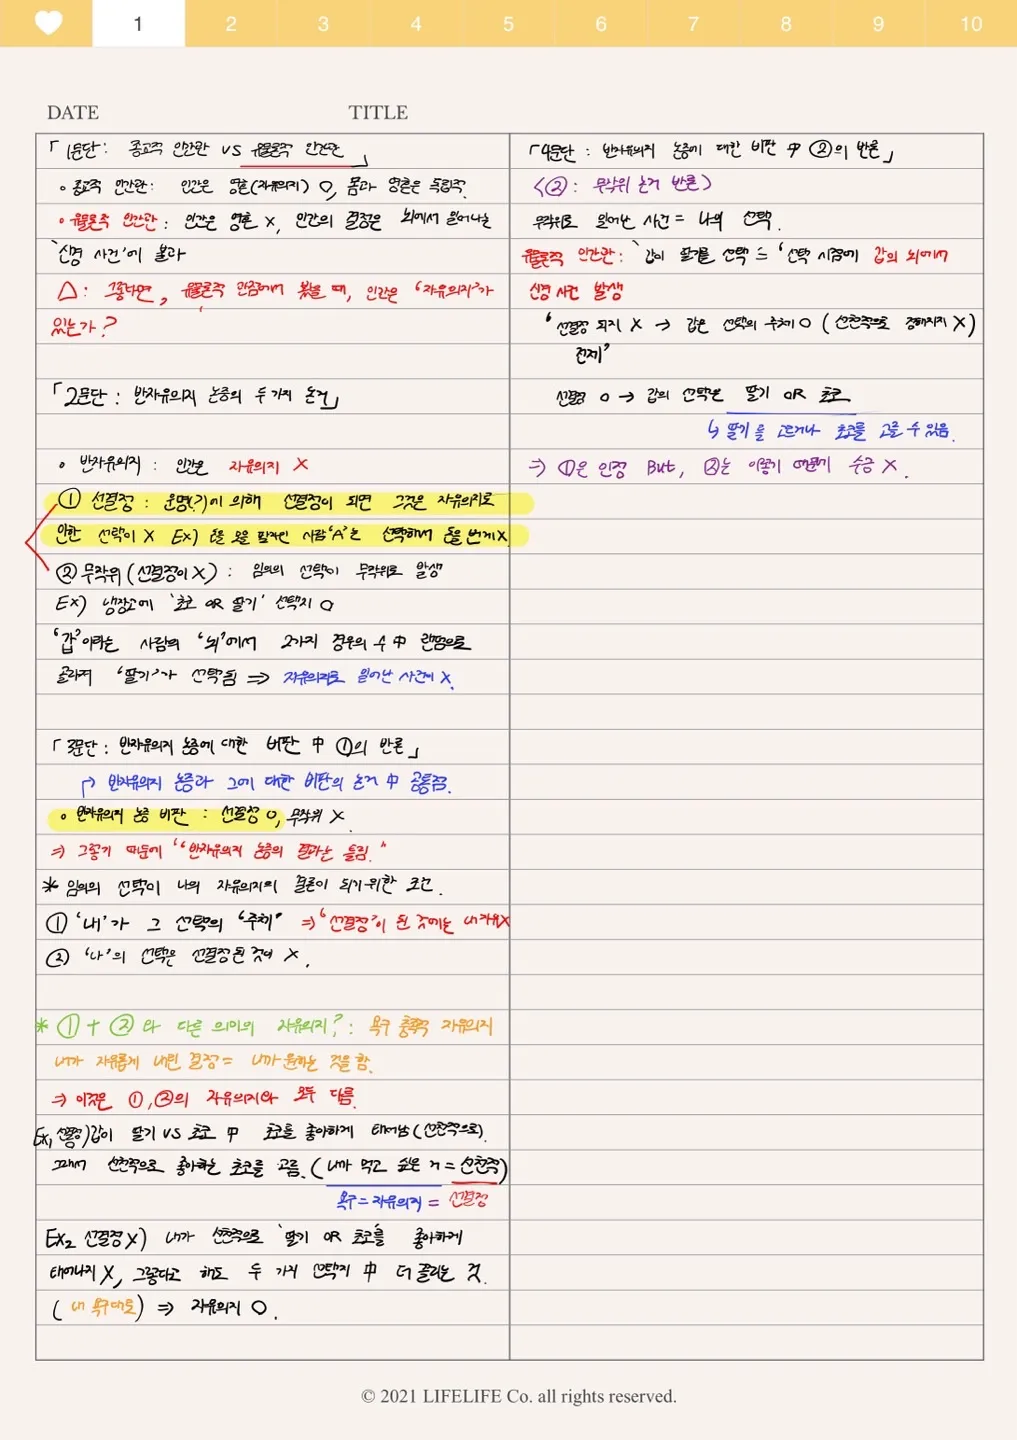 1
2
3
4
5
6
7
8
9
10
DATE
TITLE
「1문단: 종교적 인간관 VS 유물론적 인간관」
• 종교적 인간관: 인간은 영혼(자유의지) O, 몸과 영혼은 독립적.
• 유물론적 인간관: 인간은 영혼 X, 인간의 결정은 뇌에서 일어나는
'신경 사건'에 불과
△: 그렇다면, 유물론적 인간관에서 봤을 때, 인간은 '자유의지'가
있는가?
「2문단: 반자유의지 논증의 두가지 논거」
• 반자유의지: 인간은 자유의지 X
① 선결정: 운명(?)에 의해 선결정이 되면 그것은 자유의지로
인한 선택이 X Ex) 돈을 사람 'A'는 선택해서 돈을 번게 X
② 무작위(선결정이 X): 임의의 선택이 무작위로 발생
Ex) 냉장고에 '초코 OR 딸기' 선택지 O
'갑'이라는 사람의 '뇌'에서 2가지 경우의 수 中 랜덤으로
골라져 '딸기'가 선택됨 ⇒ 자유의지로 일어난 사건이 X.
「3문단: 반자유의지 논증에 대한 비판 中 ①의 반론」
↱ 반자유의지 논증과 그에 대한 비판의 논거 中 공통점.
• 반자유의지 논증 비판: 선결정 O, 무작위 X.
⇒ 그렇기 때문에 "반자유의지 논증의 결과는 틀림."
* 임의의 선택이 나의 자유의지의 결론이 되기위한 조건.
① '내'가 그 선택의 "주체" ⇒ '선결정'이 된 것에는 내 자유X
② '나'의 선택은 선결정된 것이 X.
* ① + ② 와 다른 의미의 자유의지?: 욕구 충족적 자유의지
내가 자유롭게 내린 결정 = 내가 원하는 것을 함.
⇒ 이것은 ①,②의 자유의지와 모두 다름.
Ex₁ 선결정)갑이 딸기 VS 초코 中 초코를 좋아하게 태어남(선천적으로).
그래서 선천적으로 좋아하는 초코를 고름. (내가 먹고 싶은 거 = 선천적)
욕구 = 자유의지 = 선결정
Ex₂ 선결정X) 내가 선천적으로 '딸기 OR 초코'를 좋아하게
태어나지 X, 그렇다고 해도 두 가지 선택지 中 더 끌리는 것.
(내 욕구대로) ⇒ 자유의지 O.
「4문단: 반자유의지 논증에 대한 비판 中 ②의 반론」
<②: 무작위 논거 반론>
무작위로 일어난 사건 = 나의 선택.
유물론적 인간관: '갑이 딸기를 선택 = '선택 시점에 갑의 뇌에서
신경 사건 발생
'선결정 되지 X → 갑은 선택의 주체 O (선천적으로 정해지지 X)
전제'
선결정 O → 갑의 선택은 딸기 OR 초코
↳ 딸기를 고르거나 초코를 고를 수 있음.
⇒ ①은 인정 But, ②는 이렇기 때문에 수긍 X.
© 2021 LIFELIFE Co. all rights reserved.